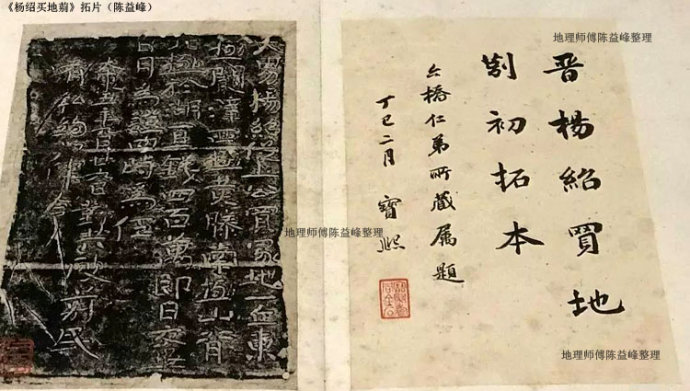 《杨绍买地莂》拓片（陈益峰）
地理师傅陈益峰整理
晋楊紹買地
莂初拓本
六橋仁弟所藏属題
丁巳二月 寶熙
大男楊紹從土公買冢地一丘東
極闞澤西極黃滕南極山背
北極於湖直錢四百萬即日交畢
日月為證四時為任
太康五年九月廿九日對共破莂民
有私約如律令
地理师傅陈益峰整理
地理师傅陈益峰整理